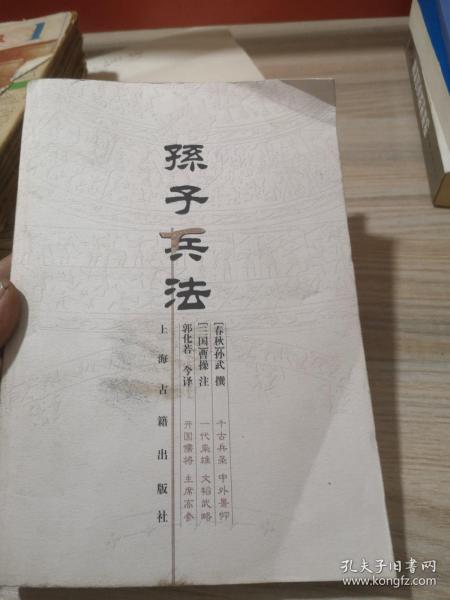 孫子兵法
[春秋]孙武 撰
[三国]曹操 注
郭化若 今译
千古兵圣 中外景仰
一代枭雄 文韬武略
开国儒将 主席高参
上海古籍出版社
1
孔夫子旧书网
www.kongfz.com